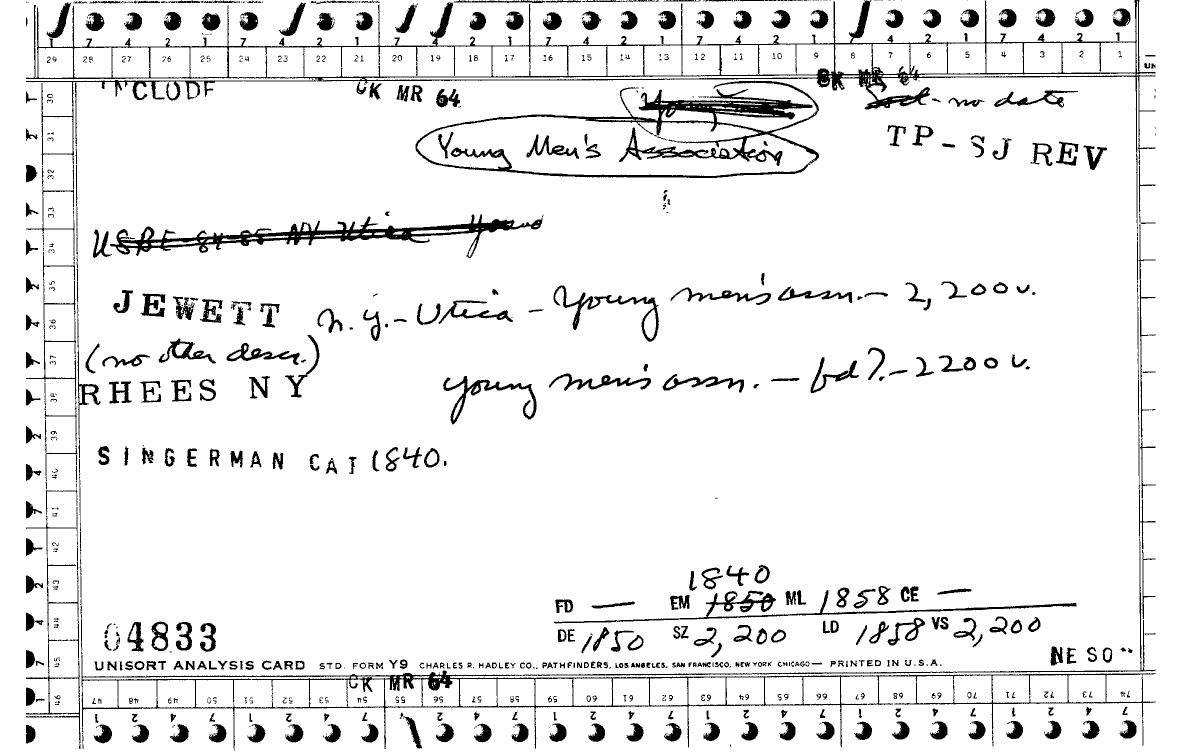 7 4 2 1 7 4 2 1 7 4 2 1 7 4 2 1 7 4 2 1 7 4 2 1
29 28 27 26 25 24 23 22 21 20 19 18 17 16 15 14 13 12 11 10 9 8 7 6 5 4 3 2 1
INCLUDE CK MR 64 CK MR 64
Young
no date
Young Men's Association
TP-SJ REV
USBE-84-85 NY Utica Young
JEWETT N.Y.-Utica-Young men's assn.-2,200v.
(no other descr.)
RHEES NY Young men's assn.-bd?.-2200v.
SINGERMAN CAT 1840.
1840
FD — EM 1850 ML 1858 CE —
04833 DE 1850 SZ 2,200 LD 1858 VS 2,200
NESO
UNISORT ANALYSIS CARD STD. FORM Y9 CHARLES R. HADLEY CO., PATHFINDERS, LOS ANGELES, SAN FRANCISCO, NEW YORK CHICAGO— PRINTED IN U.S.A.
CK MR 64
30
31
32
33
34
35
36
37
38
39
40
41
42
43
44
45
46
47 48 49 50 51 52 53 54 55 56 57 58 59 60 61 62 63 64 65 66 67 68 69 70 71 72 73 74